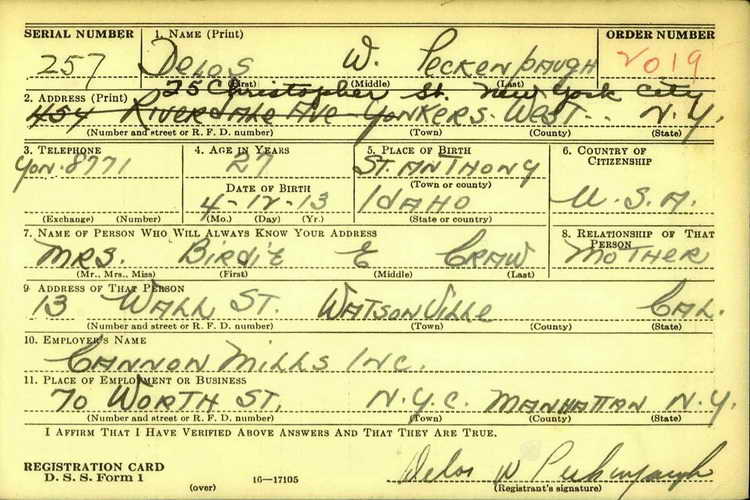 SERIAL NUMBER 1. NAME (Print) ORDER NUMBER
257 DELOS W. PECKENPAUGH 2019
(First) (Middle) (Last)
25 Christopher St. New York City
2. ADDRESS (Print) 454 RIVERDALE AVE YONKERS. WEST.. N.Y.
(Number and street or R. F. D. number) (Town) (County) (State)
3. TELEPHONE 4. AGE IN YEARS 5. PLACE OF BIRTH 6. COUNTRY OF CITIZENSHIP
YON. 8771 27 ST. ANTHONY
(Town or county)
DATE OF BIRTH
4-12-13 IDAHO U.S.A.
(Exchange) (Number) (Mo.) (Day) (Yr.) (State or country)
7. NAME OF PERSON WHO WILL ALWAYS KNOW YOUR ADDRESS 8. RELATIONSHIP OF THAT PERSON
MRS. BIRDIE E CRAW MOTHER
(Mr., Mrs., Miss) (First) (Middle) (Last)
9 ADDRESS OF THAT PERSON
13 WALL ST. WATSONVILLE CAL.
(Number and street or R. F. D. number) (Town) (County) (State)
10. EMPLOYER'S NAME
CANNON MILLS INC.
11. PLACE OF EMPLOYMENT OR BUSINESS
70 WORTH ST. N.Y.C. MANHATTAN N.Y.
(Number and street or R. F. D. number) (Town) (County) (State)
I AFFIRM THAT I HAVE VERIFIED ABOVE ANSWERS AND THAT THEY ARE TRUE.
REGISTRATION CARD
D. S. S. Form 1 (over) 16—17105
Delos W Peckenpaugh
(Registrant's signature)